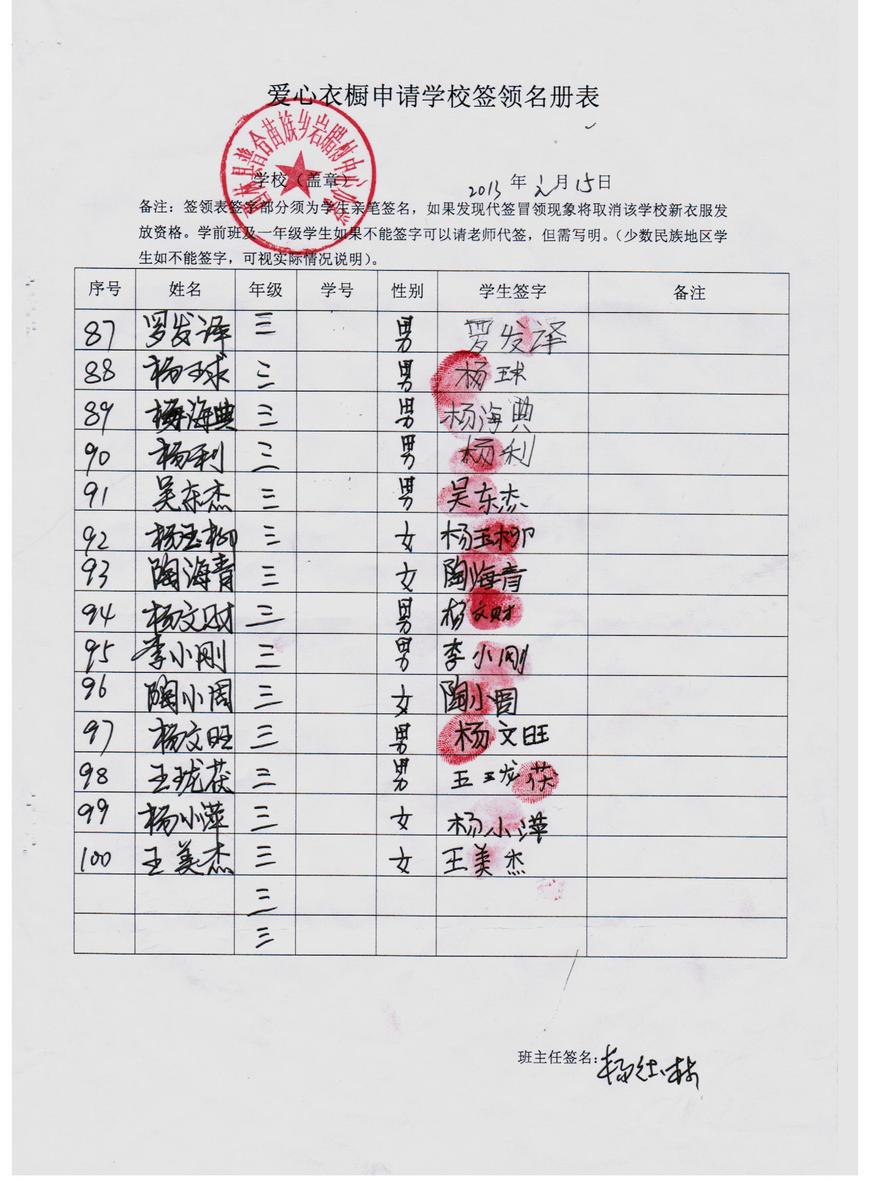 爱心衣橱申请学校签领名册表
县普合苗族乡岩腊村中心小学
学校（盖章） 2013 年 月 15日
备注：签领表签字部分须为学生亲笔签名，如果发现代签冒领现象将取消该学校新衣服发
放资格。学前班及一年级学生如果不能签字可以请老师代签，但需写明。（少数民族地区学
生如不能签字，可视实际情况说明）。
序号 姓名 年级 学号 性别 学生签字 备注
87 罗发泽 三 男 罗发泽
88 杨玉球 三 男 杨球
89 海典 三 男 杨海典
90 杨利 三 男 杨利
91 吴东杰 三 男 吴东杰
92 杨玉柳 三 女 杨玉柳
93 陶海青 三 女 陶海青
94 杨文财 三 男 杨文财
95 李小刚 三 男 李小刚
96 陶小周 三 女 陶小周
97 杨文旺 三 男 杨文旺
98 王珑茯 三 男 五珑茯
99 杨小萍 三 女 杨小萍
100 王美杰 三 女 王美杰
三
三
班主任签名：杨